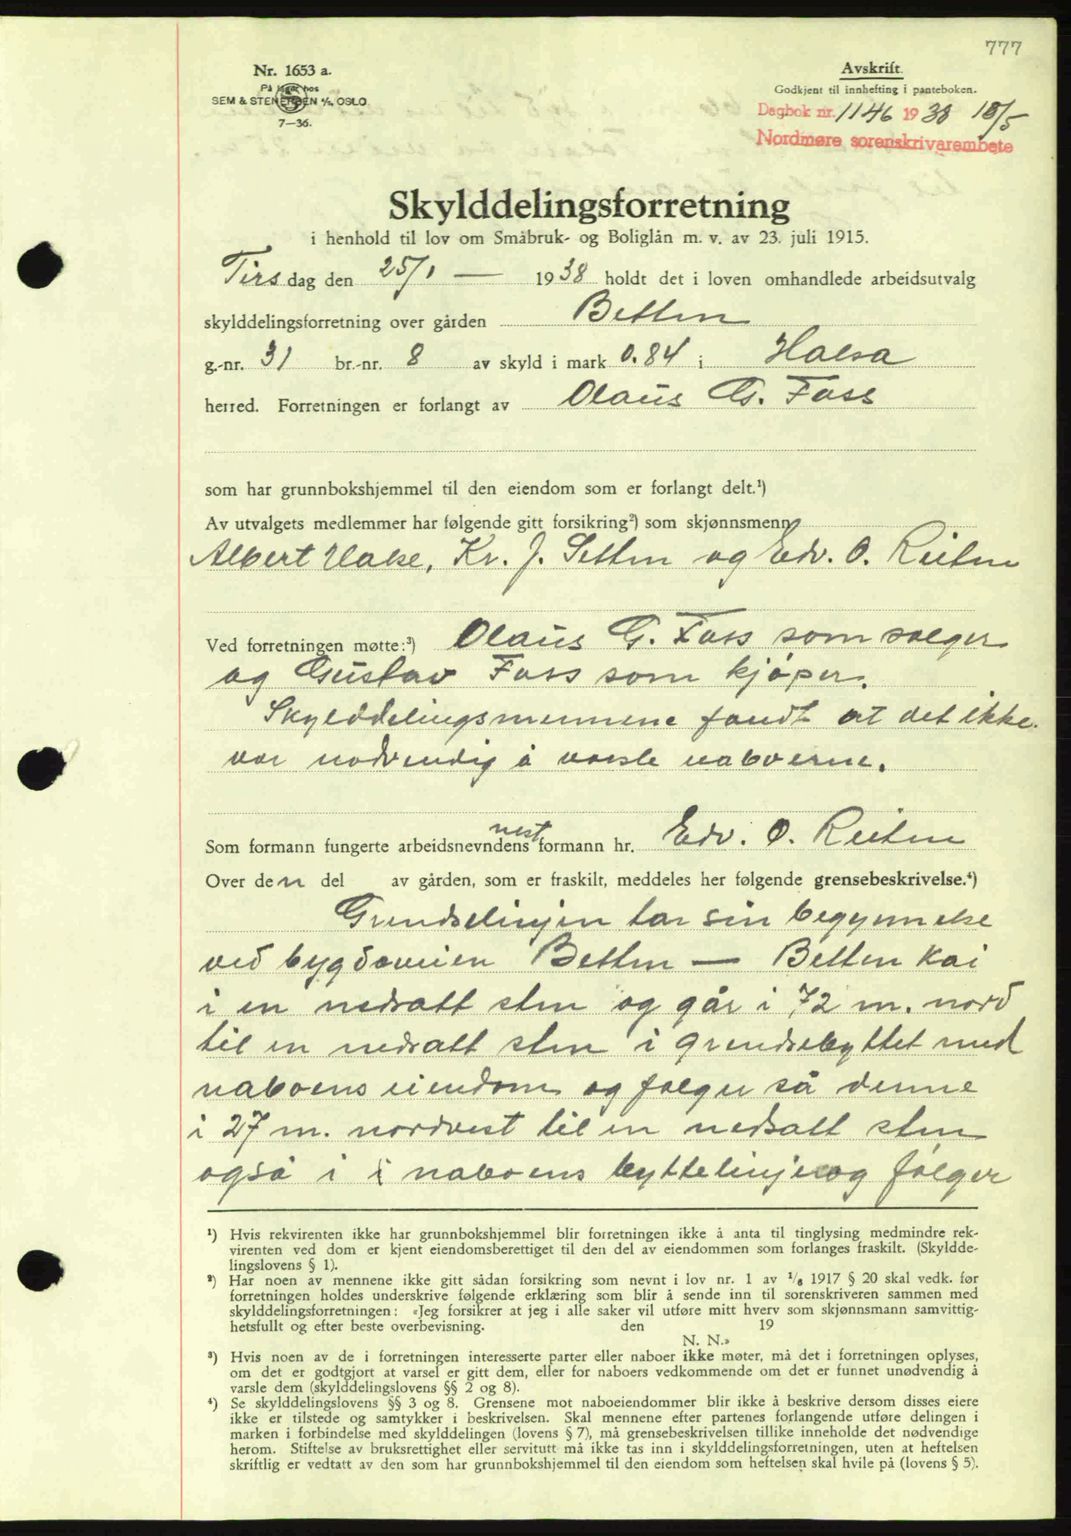 777
Nr. 1653 a.
På lager hos
SEM & STENERSEN A/S, OSLO
7—36.
Avskrift.
Godkjent til innhefting i panteboken.
Dagbok nr. 1146 1938 18/5
Nordmøre sorenskrivarembete
Skylddelingsforretning
i henhold til lov om Småbruk- og Boliglån m. v. av 23. juli 1915.
Tirsdag den 25/1 — 1938 holdt det i loven omhandlede arbeidsutvalg
skylddelingsforretning over gården Betten
g.-nr. 31 br.-nr. 8 av skyld i mark 0.84 i Halsa
herred. Forretningen er forlangt av Olaus G. Foss
som har grunnbokshjemmel til den eiendom som er forlangt delt.¹)
Av utvalgets medlemmer har følgende gitt forsikring²) som skjønnsmenn
Albert Halse, Kr. J. Setten og Edv. O. Reiten
Ved forretningen møtte:³) Olaus G. Foss som selger
og Gustav Foss som kjøper.
Skylddelingsmennene fandt at det ikke
var nødvendig å varsle naboerne.
Som formann fungerte arbeidsnevndens nestformann hr. Edv. O. Reiten
Over den del av gården, som er fraskilt, meddeles her følgende grensebeskrivelse.⁴)
Grendselinjen tar sin begynnelse
ved bygdaveien Betten — Betten kai
i en nedsatt sten og går i 72 m. nord
til en nedsatt sten i grendsebyttet med
naboens eiendom og følger så denne
i 27 m. nordvest til en nedsatt sten
også i i naboens byttelinje og følger
¹) Hvis rekvirenten ikke har grunnbokshjemmel blir forretningen ikke å anta til tinglysing medmindre rek-
virenten ved dom er kjent eiendomsberettiget til den del av eiendommen som forlanges fraskilt. (Skyldde-
lingslovens § 1).
²) Har noen av mennene ikke gitt sådan forsikring som nevnt i lov nr. 1 av 1/6 1917 § 20 skal vedk. før
forretningen holdes underskrive følgende erklæring som blir å sende inn til sorenskriveren sammen med
skylddelingsforretningen: «Jeg forsikrer at jeg i alle saker vil utføre mitt hverv som skjønnsmann samvittig-
hetsfullt og efter beste overbevisning. den 19
N. N.»
³) Hvis noen av de i forretningen interesserte parter eller naboer ikke møter, må det i forretningen oplyses,
om det er godtgjort at varsel er gitt dem, eller for naboers vedkommende om det er funnet unødvendig å
varsle dem (skylddelingslovens §§ 2 og 8).
⁴) Se skylddelingslovens §§ 3 og 8. Grensene mot naboeiendommer blir ikke å beskrive dersom disses eiere
ikke er tilstede og samtykker i beskrivelsen. Skal mennene efter partenes forlangende utføre delingen i
marken i forbindelse med skylddelingen (lovens § 7), må grensebeskrivelsen tillike inneholde det nødvendige
herom. Stiftelse av bruksrettighet eller servitutt må ikke tas inn i skylddelingsforretningen, uten at heftelsen
skriftlig er vedtatt av den som har grunnbokshjemmel til den eiendom som heftelsen skal hvile på (lovens § 5).